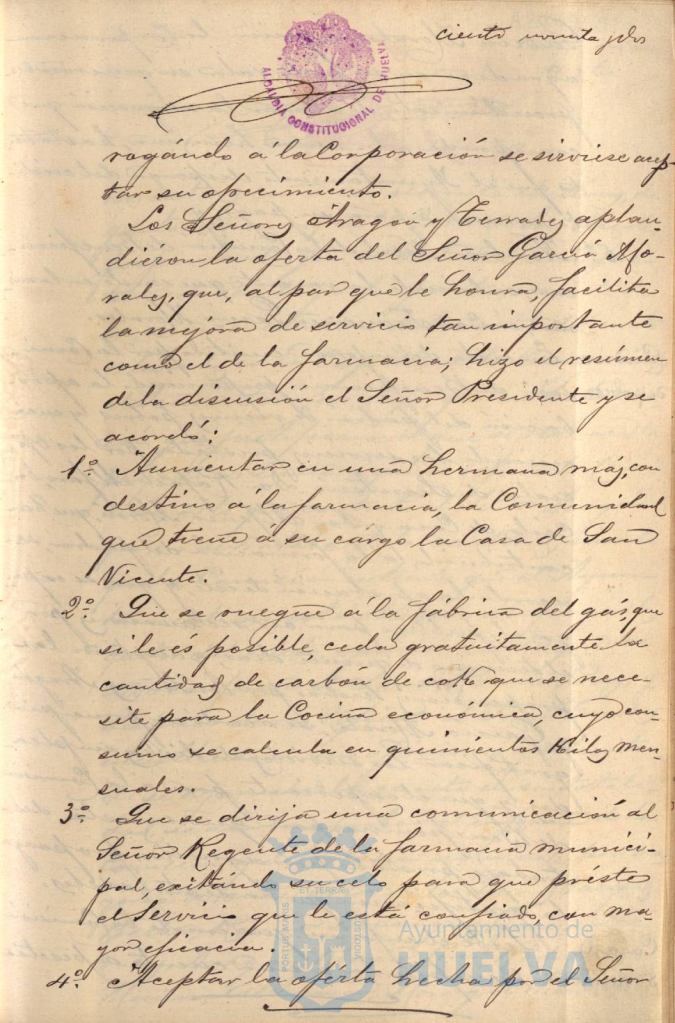 ciento noventa y dos
ALCALDIA CONSTITUCIONAL DE HUELVA
rogándo á la Corporación se sirviese acep-
tar su ofrecimiento.
Los Señores Aragón y Terrades aplau-
diéron la oferta del Señor García Mo-
rales, que, al par que le honra, facilita
la mejora de servicio tan importante
como el de la farmacia; hizo el resúmen
de la discusión el Señor Presidente y se
acordó:
1º Aumentar en una hermana más, con
destino á la farmacia, la Comunidad
que tiene á su cargo la Casa de San
Vicente.
2º Que se ruegue á la fábrica del gas, que
si le és posible, ceda gratuitamente la
cantidad de carbón de coK que se nece-
site para la Cocina económica, cuyo con-
sumo se calcula en quinientos Kilos men-
suales.
3º Que se dirija una comunicación al
Señor Regente de la farmacia munici-
pal, exitándo su celo para que préste
el Servicio que le está confiado, con ma-
yor eficacia.
4º Aceptar la oférta hecha por el Señor
PORTUS MARIS ET TERRAE CUSTODIA
Ayuntamiento de
HUELVA